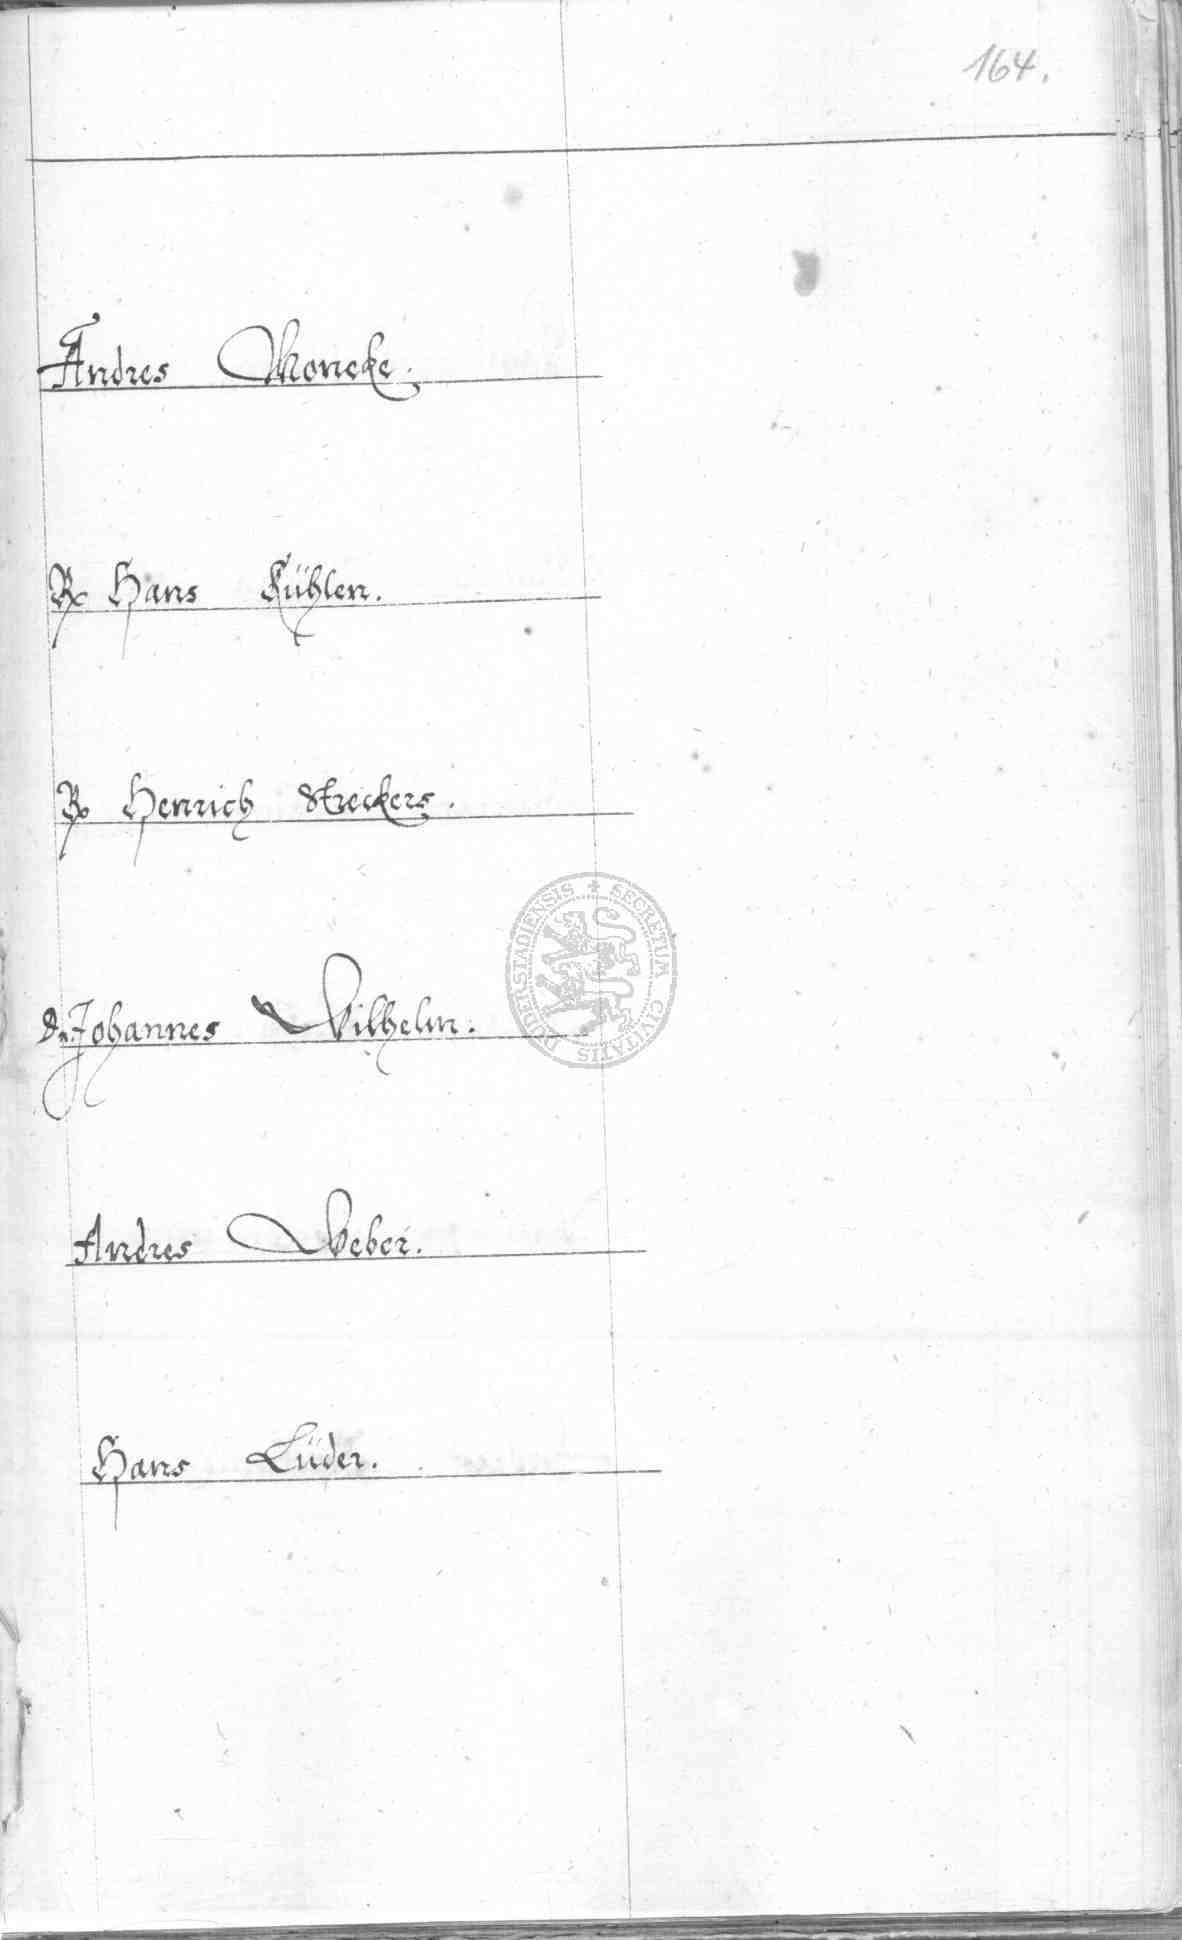 164.
Andres Moncke.
Hans Kühlen.
Henrich Streckers.
Johannes Wilhelm.
Andres Weber.
Hans Lüder.
SECRETUM CIVITATIS DUDERSTADIENSIS